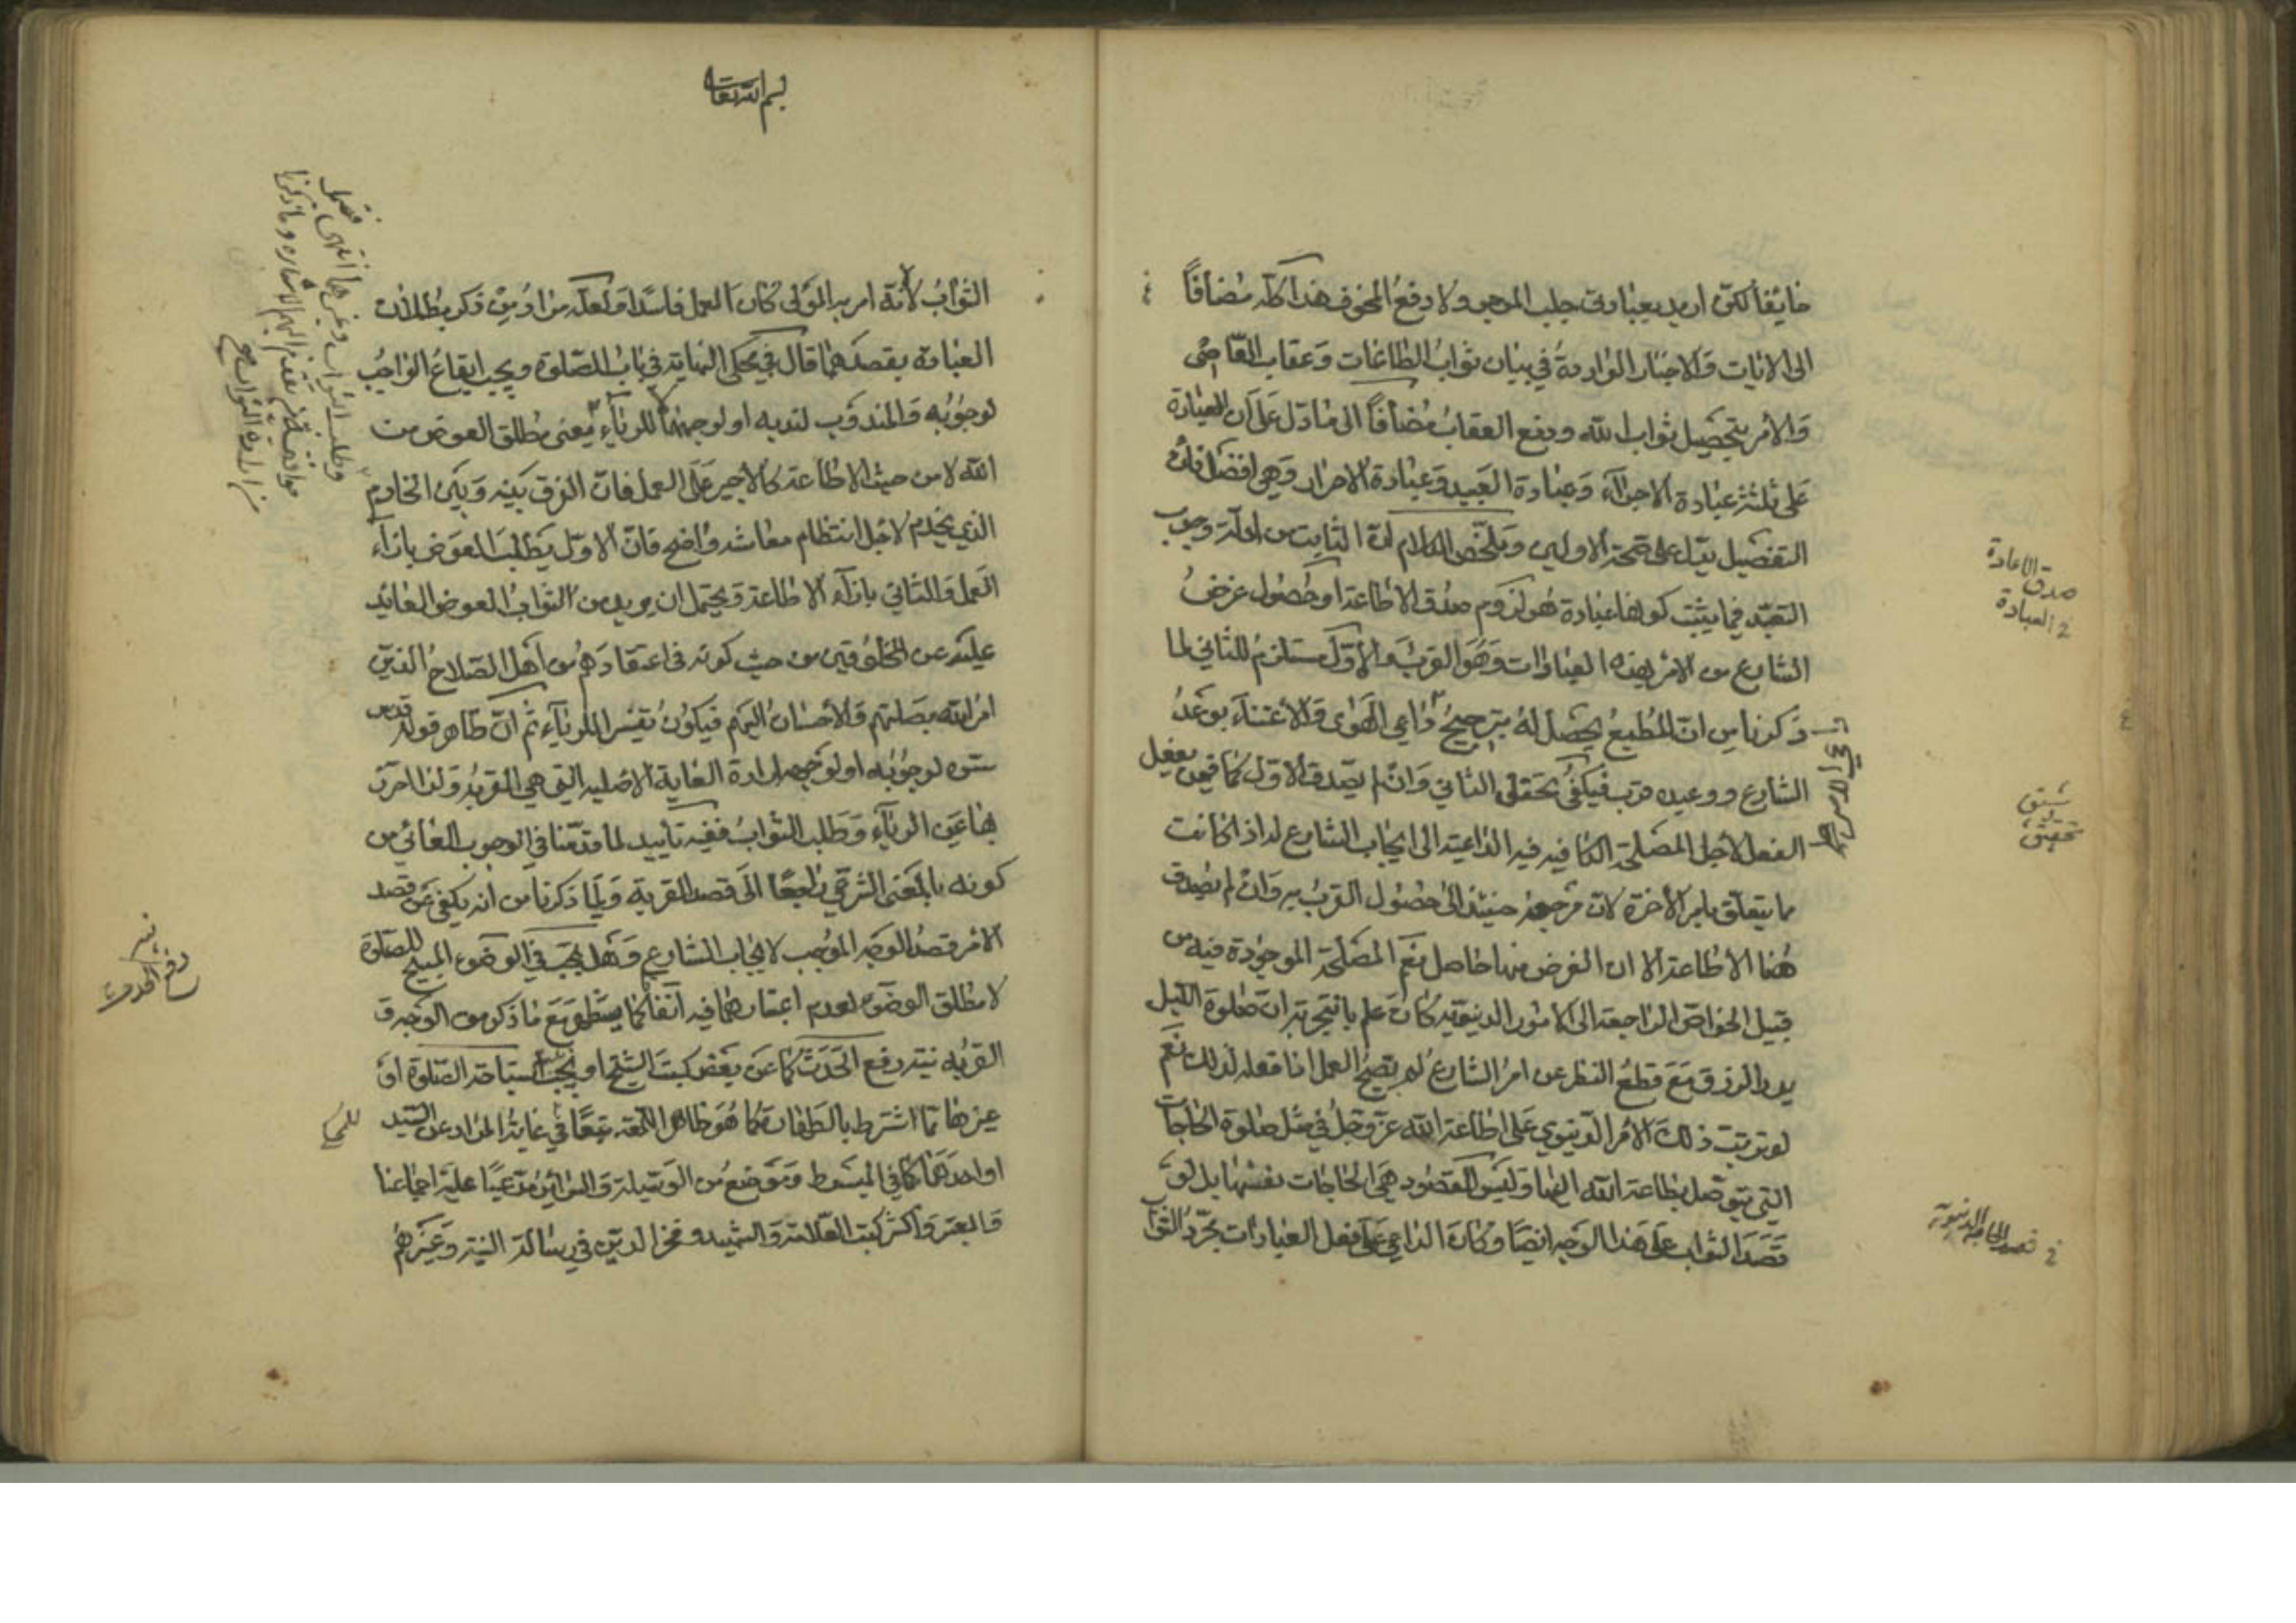 خائفا لكن اريد بعبادتى جلب المرجو ولا دفع المخوف هذا كله مضافاً
الى الايات والاخبار الواردة في بيان ثواب الطاعات وعقاب المعاصى
والأمر بتحصيل ثواب الله ودفع العقاب مضافاً الى مادل على ان العبادة
على ثلثة عبادة الاجراء وعبادة العبيد وعبادة الاحرار وهي افضل فان
التفضيل يدل على صحة الاولين وملخص الكلام ان الثابت من ادلة وجوب
التعبد فيما يثبت كونها عبادة هو لزوم صدق الاطاعة او حصول غرض
الشارع من الامر بهذه العبادات وهو القرب والأول مستلزم للثاني لما
ذكرنا من ان المطيع يحصل له بترجيح داعي الهوى والاعتناء بوعد
الشارع ووعيده قرب فيكفى تحقق الثاني وان لم يصدق الاول كما فيمن يفعل
الفعل لاجل المصلحة الكافية فيه الداعية الى ايجاب الشارع له اذا كانت
مما يتعلق بامر الأخرة لان مرجعه حينئذ الى حصول القرب به وان لم يصدق
هنا الاطاعة الا ان الغرض منها حاصل نعم المصلحة الموجودة فيه من
قبيل الخواص الراجعة الى الامور الدنيوية كان علم بالتجربة ان صلوة الليل
يدر الرزق مع قطع النظر عن امر الشارع لم يصح العمل اذا فعله لذلك نعم
لو ترتب ذلك الامر الدنيوي على اطاعة الله عز وجل في مثل صلوة الحاجات
التي يتوصل بطاعة الله اليها وليس المقصود هي الحاجات نفسها بل لو
قصد الثواب على هذا الوجه ايضا وكان الداعي على فعل العبادات مجرد الثواب
صدق الاعادة
في العبادة
تحقيق
في قصد الحاجة الدنيوية
بسم الله تعالى
الثواب لأنه امر به المولى كان العمل فاسدا ولعله مراد من ذكر بطلان
العبادة بقصدهما قال في محكى النهاية في باب الصلوة ويجب ايقاع الواجب
لوجوبه والمندوب لندبه او لوجههما للرياء بمعنى مطلق العوض من
الله لا من حيث الاطاعة كالأجير على العمل فان الفرق بينه وبين الخادم
الذي يخدم لاجل انتظام معاشه واضح فان الاول يطلب العوض بازاء
العمل والثاني بازاء الاطاعة ويحتمل ان يريد من الثواب العوض العائد
عليه من المخلوقين من حيث كونه في اعتقادهم من اهل الصلاح الذين
امر الله بصلتهم والاحسان اليهم فيكون تفسيرا للرياء ثم ان ظاهر قوله قدس
سره لوجوبه او لوجهه ارادة الغاية الاصلية التي هي القربة ولذا احترز
بها عن الرياء وطلب الثواب ففيه تأييد لما قدمنا في الوجوب الغائي من
كونه بالمعنى الشرعي راجعا الى قصد القربة ولما ذكرنا من انه يكفى عن قصد
الأمر قصد الوجه الموجب لايجاب الشارع وهل يجب في الوضوء المبيح للصلوة
لا مطلق الوضوء لعدم اعتبارهما فيه اتفاقا كما يظهر مع ما ذكر من الوجه و
القربة نية رفع الحدث كما عن بعض كتب الشيخ او يجب استباحة الصلوة او
غيرها مما اشترط بالطهارة كما هو ظاهر اللمعة تبعا في غاية المراد عن السيد
او احدهما كما في المبسوط وموضع من الوسيلة والسرائر مدعيا عليه اجماعنا
والمعتبر واكثر كتب العلامة والشهيد وفخر الدين في رسالة النية وغيرهم
نية
رفع الحدث